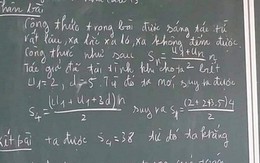 hân bài
Công thức trong bài được sáng tác từ
rất lâu, xa lắc xa lơ, xa không đếm được.
Công thức như sau S = u₁+uₙ / 2
Tác giả đã tài tình khi cho ta 2 biết
u₁=2, d=5. Từ đó ta mới suy ra được
S₄ = (u₁+u₁+3d)n / 2 suy ra S₄ = (2+2+3.5)4 / 2
Kết bài ta được S₄=38 từ đó ta